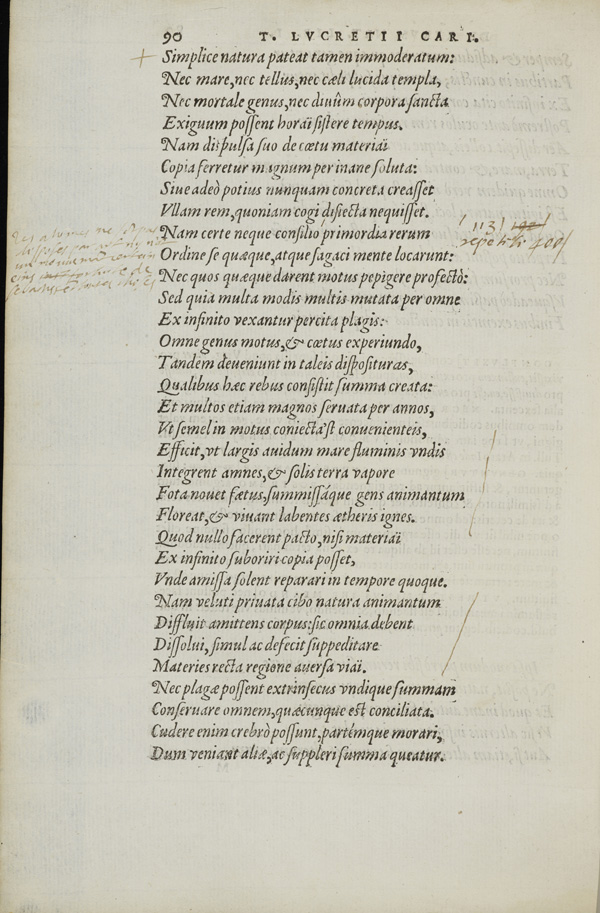 90 T. LVCRETII CARI.
Simplice natura pateat tamen immoderatum:
Nec mare, nec tellus, nec cæli lucida templa,
Nec mortale genus, nec diuûm corpora sancta
Exiguum possent horaï sistere tempus.
Nam dispulsa suo de cœtu materiaï
Copia ferretur magnum per inane soluta:
Siue adeò potius nunquam concreta creasset
Vllam rem, quoniam cogi disiecta nequisset.
Nam certe neque consilio primordia rerum
Ordine se quæque, atque sagaci mente locarunt:
Nec quos quæque darent motus pepigere profectò:
Sed quia multa modis multis mutata per omne
Ex infinito vexantur percita plagis:
Omne genus motus, & cœtus experiundo,
Tandem deueniunt in taleis disposituras,
Qualibus hæc rebus consistit summa creata:
Et multos etiam magnos seruata per annos,
Vt semel in motus coniecta'st conuenienteis,
Efficit, vt largis auidum mare fluminis vndis
Integrent amnes, & solis terra vapore
Fota nouet fœtus, summissáque gens animantum
Floreat, & viuant labentes ætheris ignes.
Quod nullo facerent pacto, nisi materiaï
Ex infinito suboriri copia posset,
Vnde amissa solent reparari in tempore quoque.
Nam veluti priuata cibo natura animantum
Diffluit amittens corpus: sic omnia debent
Dissolui, simul ac defecit suppeditare
Materies recta regione auersa viaï.
Nec plagæ possent extrinsecus vndique summam
Conseruare omnem, quæcunque est conciliata.
Cudere enim crebrò possunt, partémque morari,
Dum veniant aliæ, ac suppleri summa queatur.
113
400